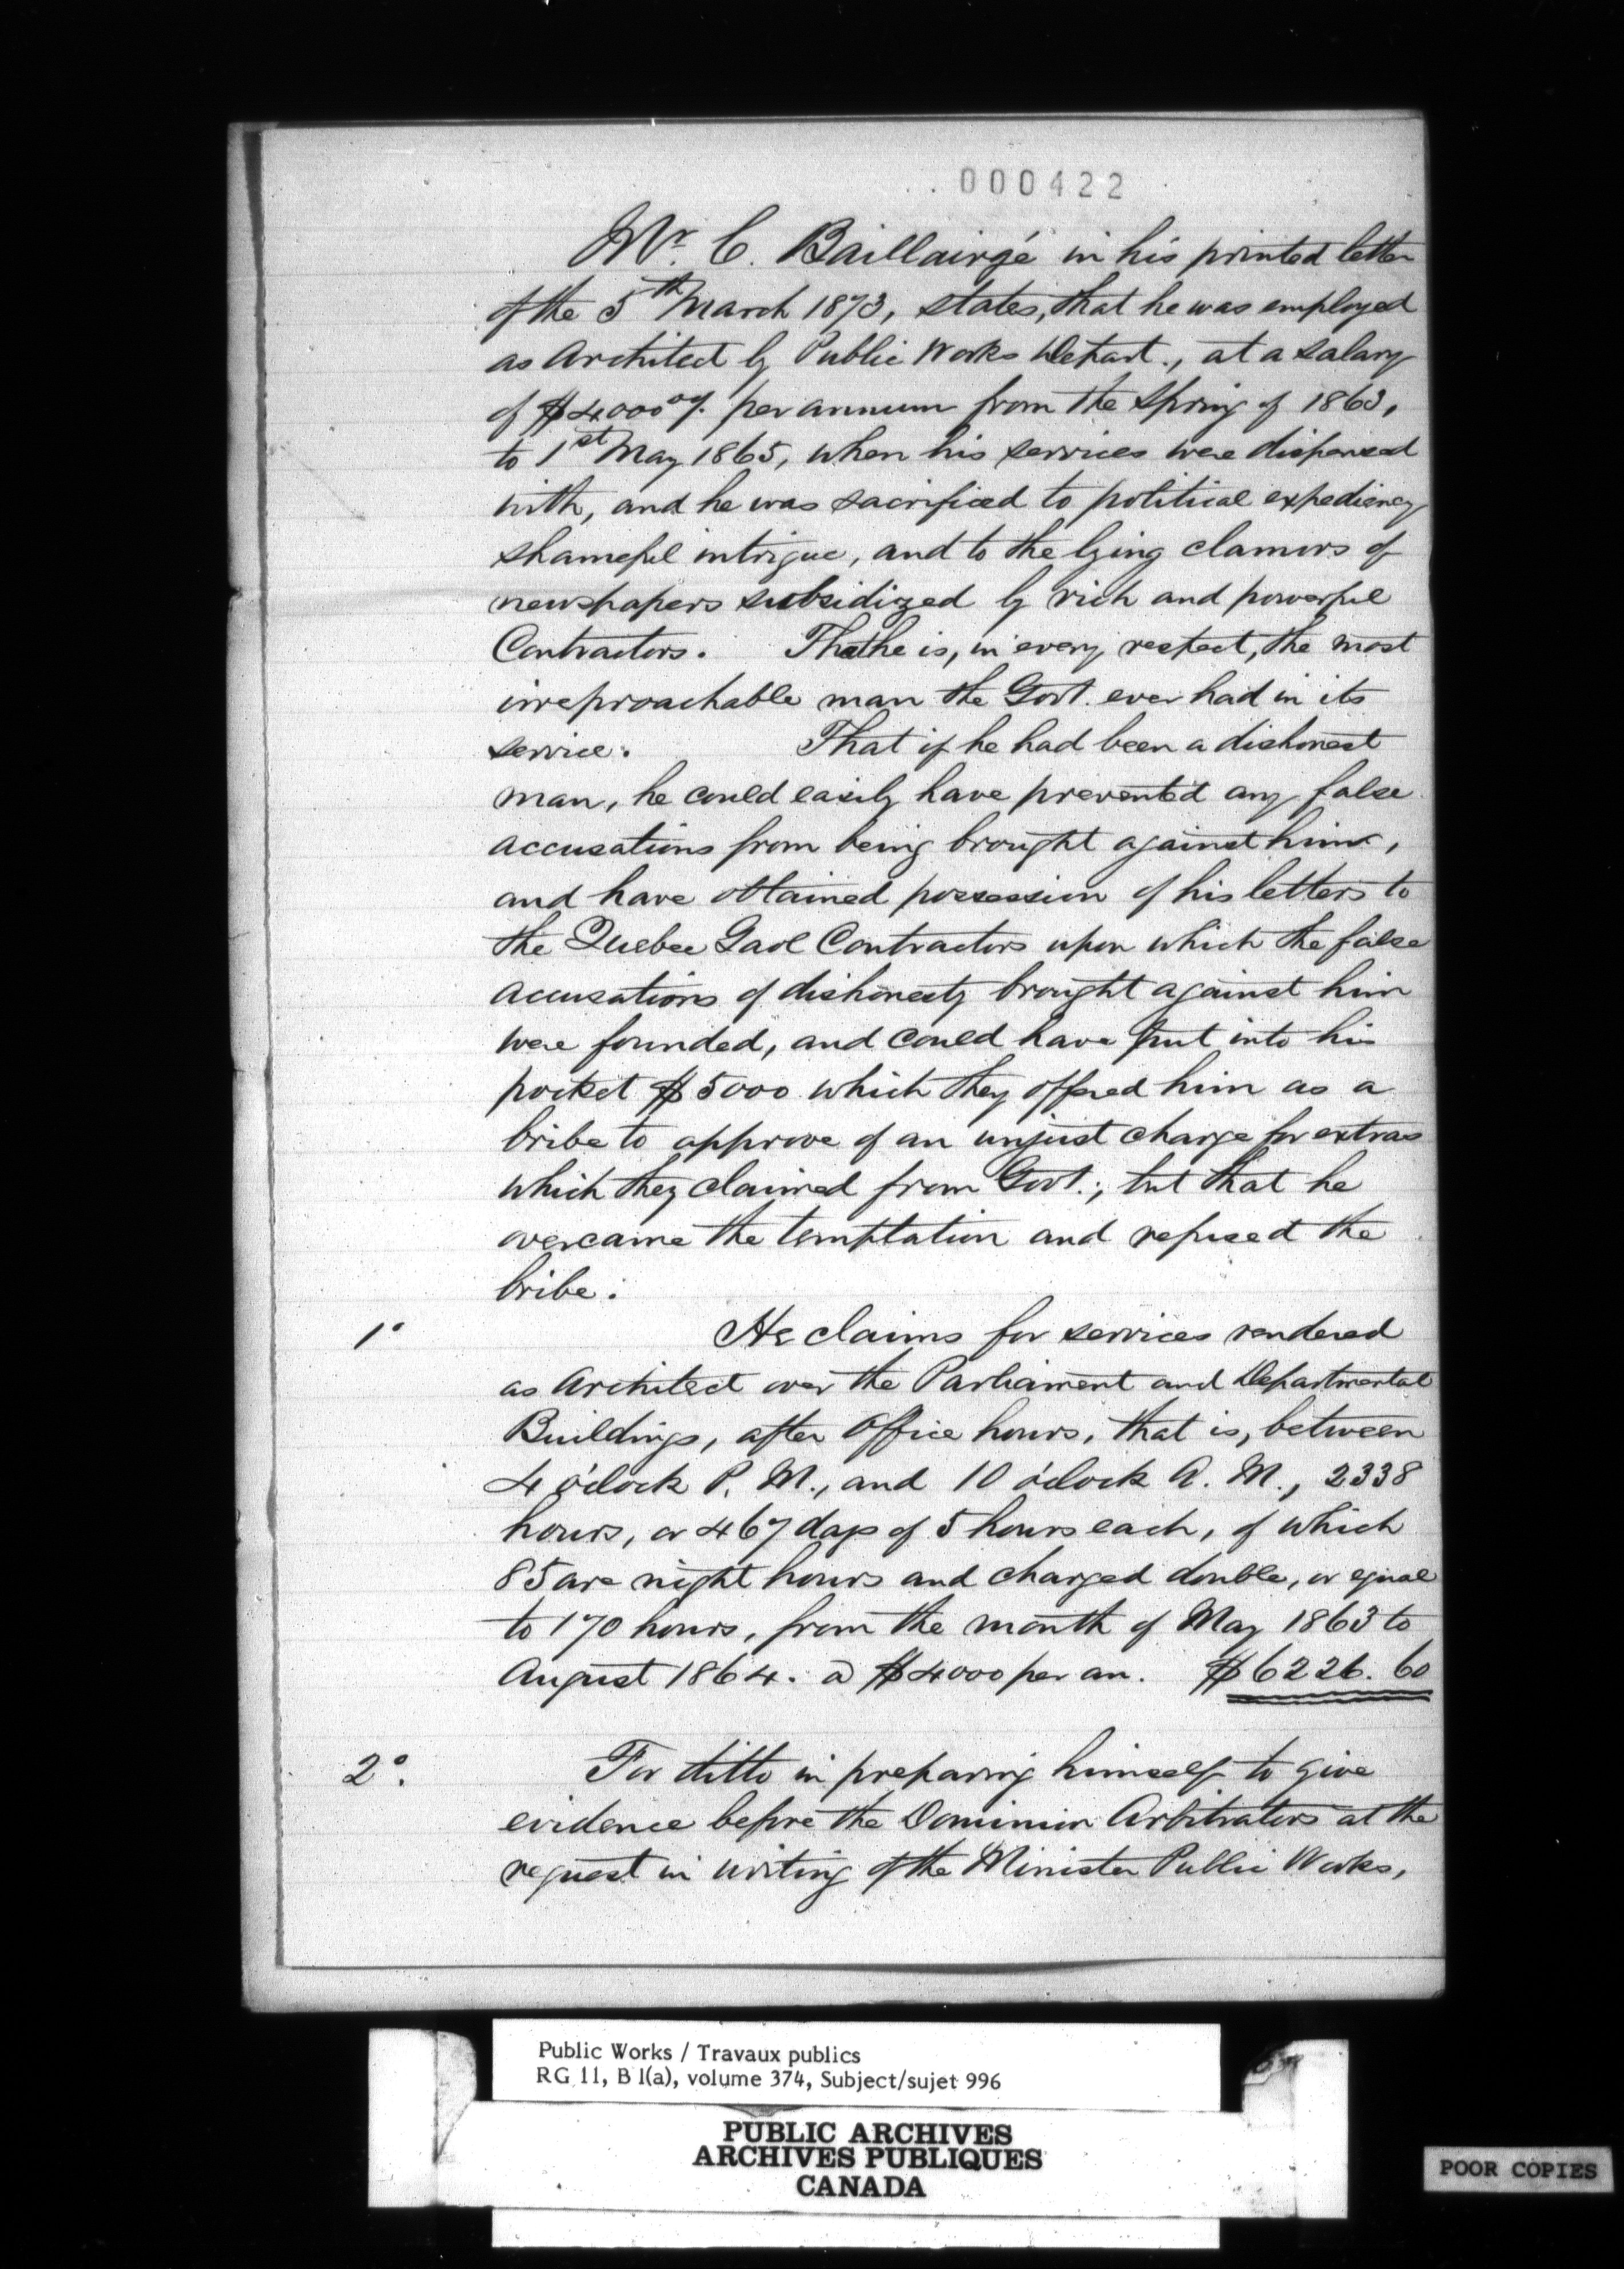 000422
Mr. C. Baillairgé in his printed letter
of the 5th March 1873, states, that he was employed
as Architect by Public Works Depart., at a salary
of $4000 per annum from the Spring of 1863,
to 1st May 1865, when his services were dispensed
with, and he was sacrificed to political expediency
shameful intrigue, and to the lying clamors of
newspapers subsidized by rich and powerful
Contractors. That he is, in every respect, the most
irreproachable man the Govt. ever had in its
service. That if he had been a dishonest
man, he could easily have prevented any false
accusations from being brought against him,
and have obtained possession of his letters to
the Quebec Gaol Contractors upon which the false
accusations of dishonesty brought against him
were founded, and could have put into his
pocket $5000 which they offered him as a
bribe to approve of an unjust charge for extras
which they claimed from Govt.; but that he
overcame the temptation and refused the
bribe.
1° He claims for services rendered
as Architect over the Parliament and Departmental
Buildings, after office hours, that is, between
4 o'clock P. M., and 10 o'clock A. M., 2338
hours, or 467 days of 5 hours each, of which
85 are night hours and charged double, or equal
to 170 hours, from the month of May 1863 to
August 1864. @ $4000 per an. $6226.60
2°. For ditto in preparing himself to give
evidence before the Dominion Arbitrators at the
request in writing of the Minister Public Works,
Public Works / Travaux publics
RG 11, B 1(a), volume 374, Subject/sujet 996
PUBLIC ARCHIVES
ARCHIVES PUBLIQUES
CANADA
POOR COPIES